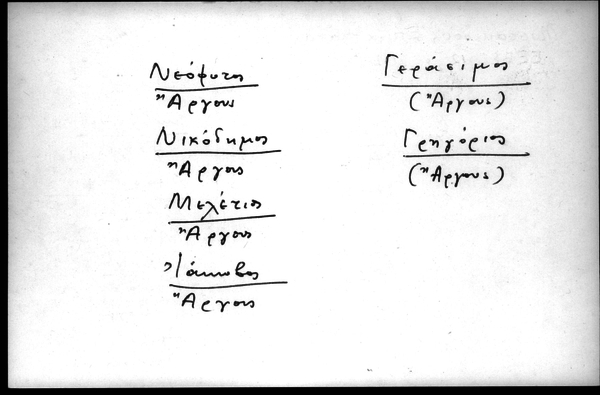 Νεόφυτος
Ἄργους
Νικόδημος
Ἄργους
Μελέτιος
Ἄργους
Ἰάκωβος
Ἄργους
Γεράσιμος
(Ἄργους)
Γρηγόριος
(Ἄργους)